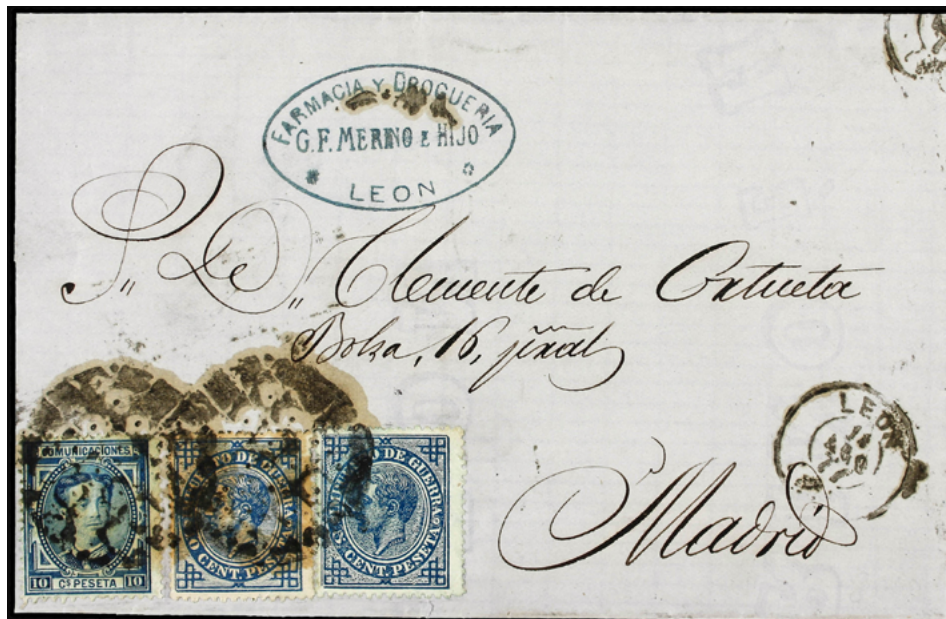 FARMACIA Y DROGUERIA
G. F. MERINO E HIJO
LEON
S. D. Clemente de
Bolsa, 16, pral
LEON
14
AGO
COMUNICACIONES
10 Cs PESETA 10
IMPUESTO DE GUERRA
CENT. PESETA
IMPUESTO DE GUERRA
5 CENT. PESETA
Madrid